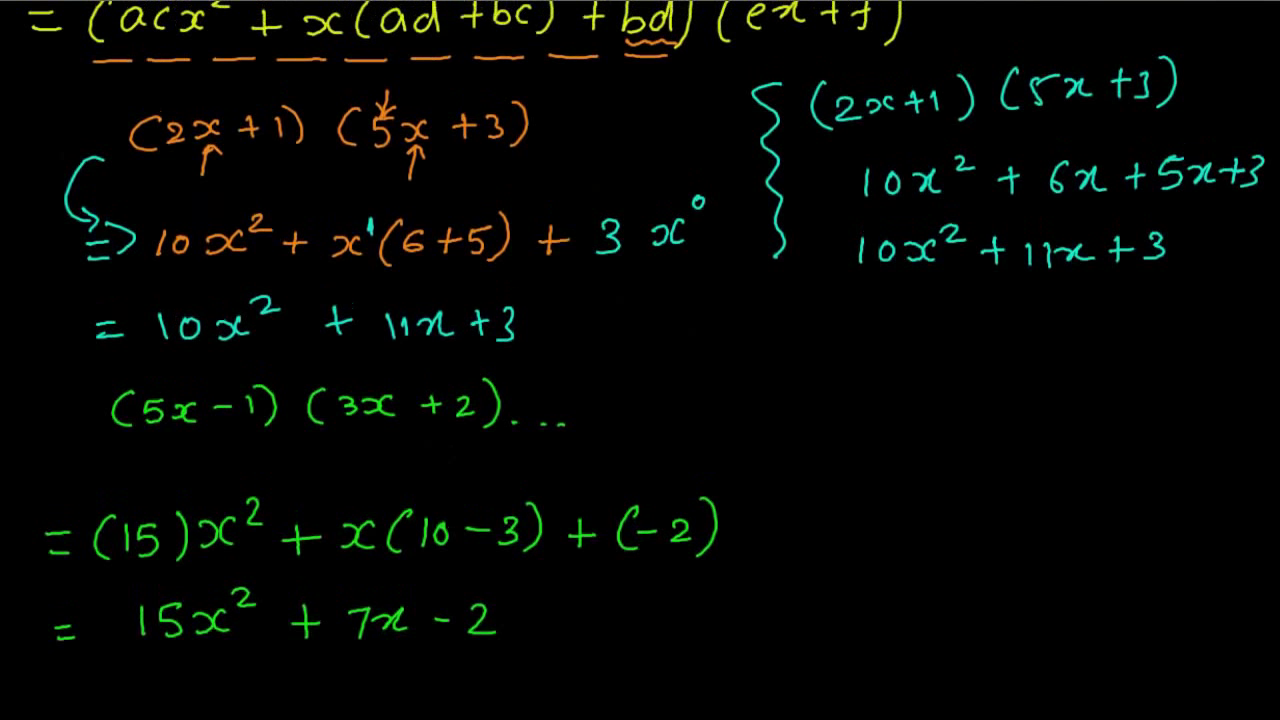 = (acx² + x(ad + bc) + bd) (ex + f)
(2x + 1) (5x + 3)
=> 10x² + x¹(6 + 5) + 3x⁰
= 10x² + 11x + 3
(5x - 1) (3x + 2). ...
= (15)x² + x(10 - 3) + (-2)
= 15x² + 7x - 2
(2x+1) (5x+3)
10x² + 6x + 5x+3
10x² + 11x + 3